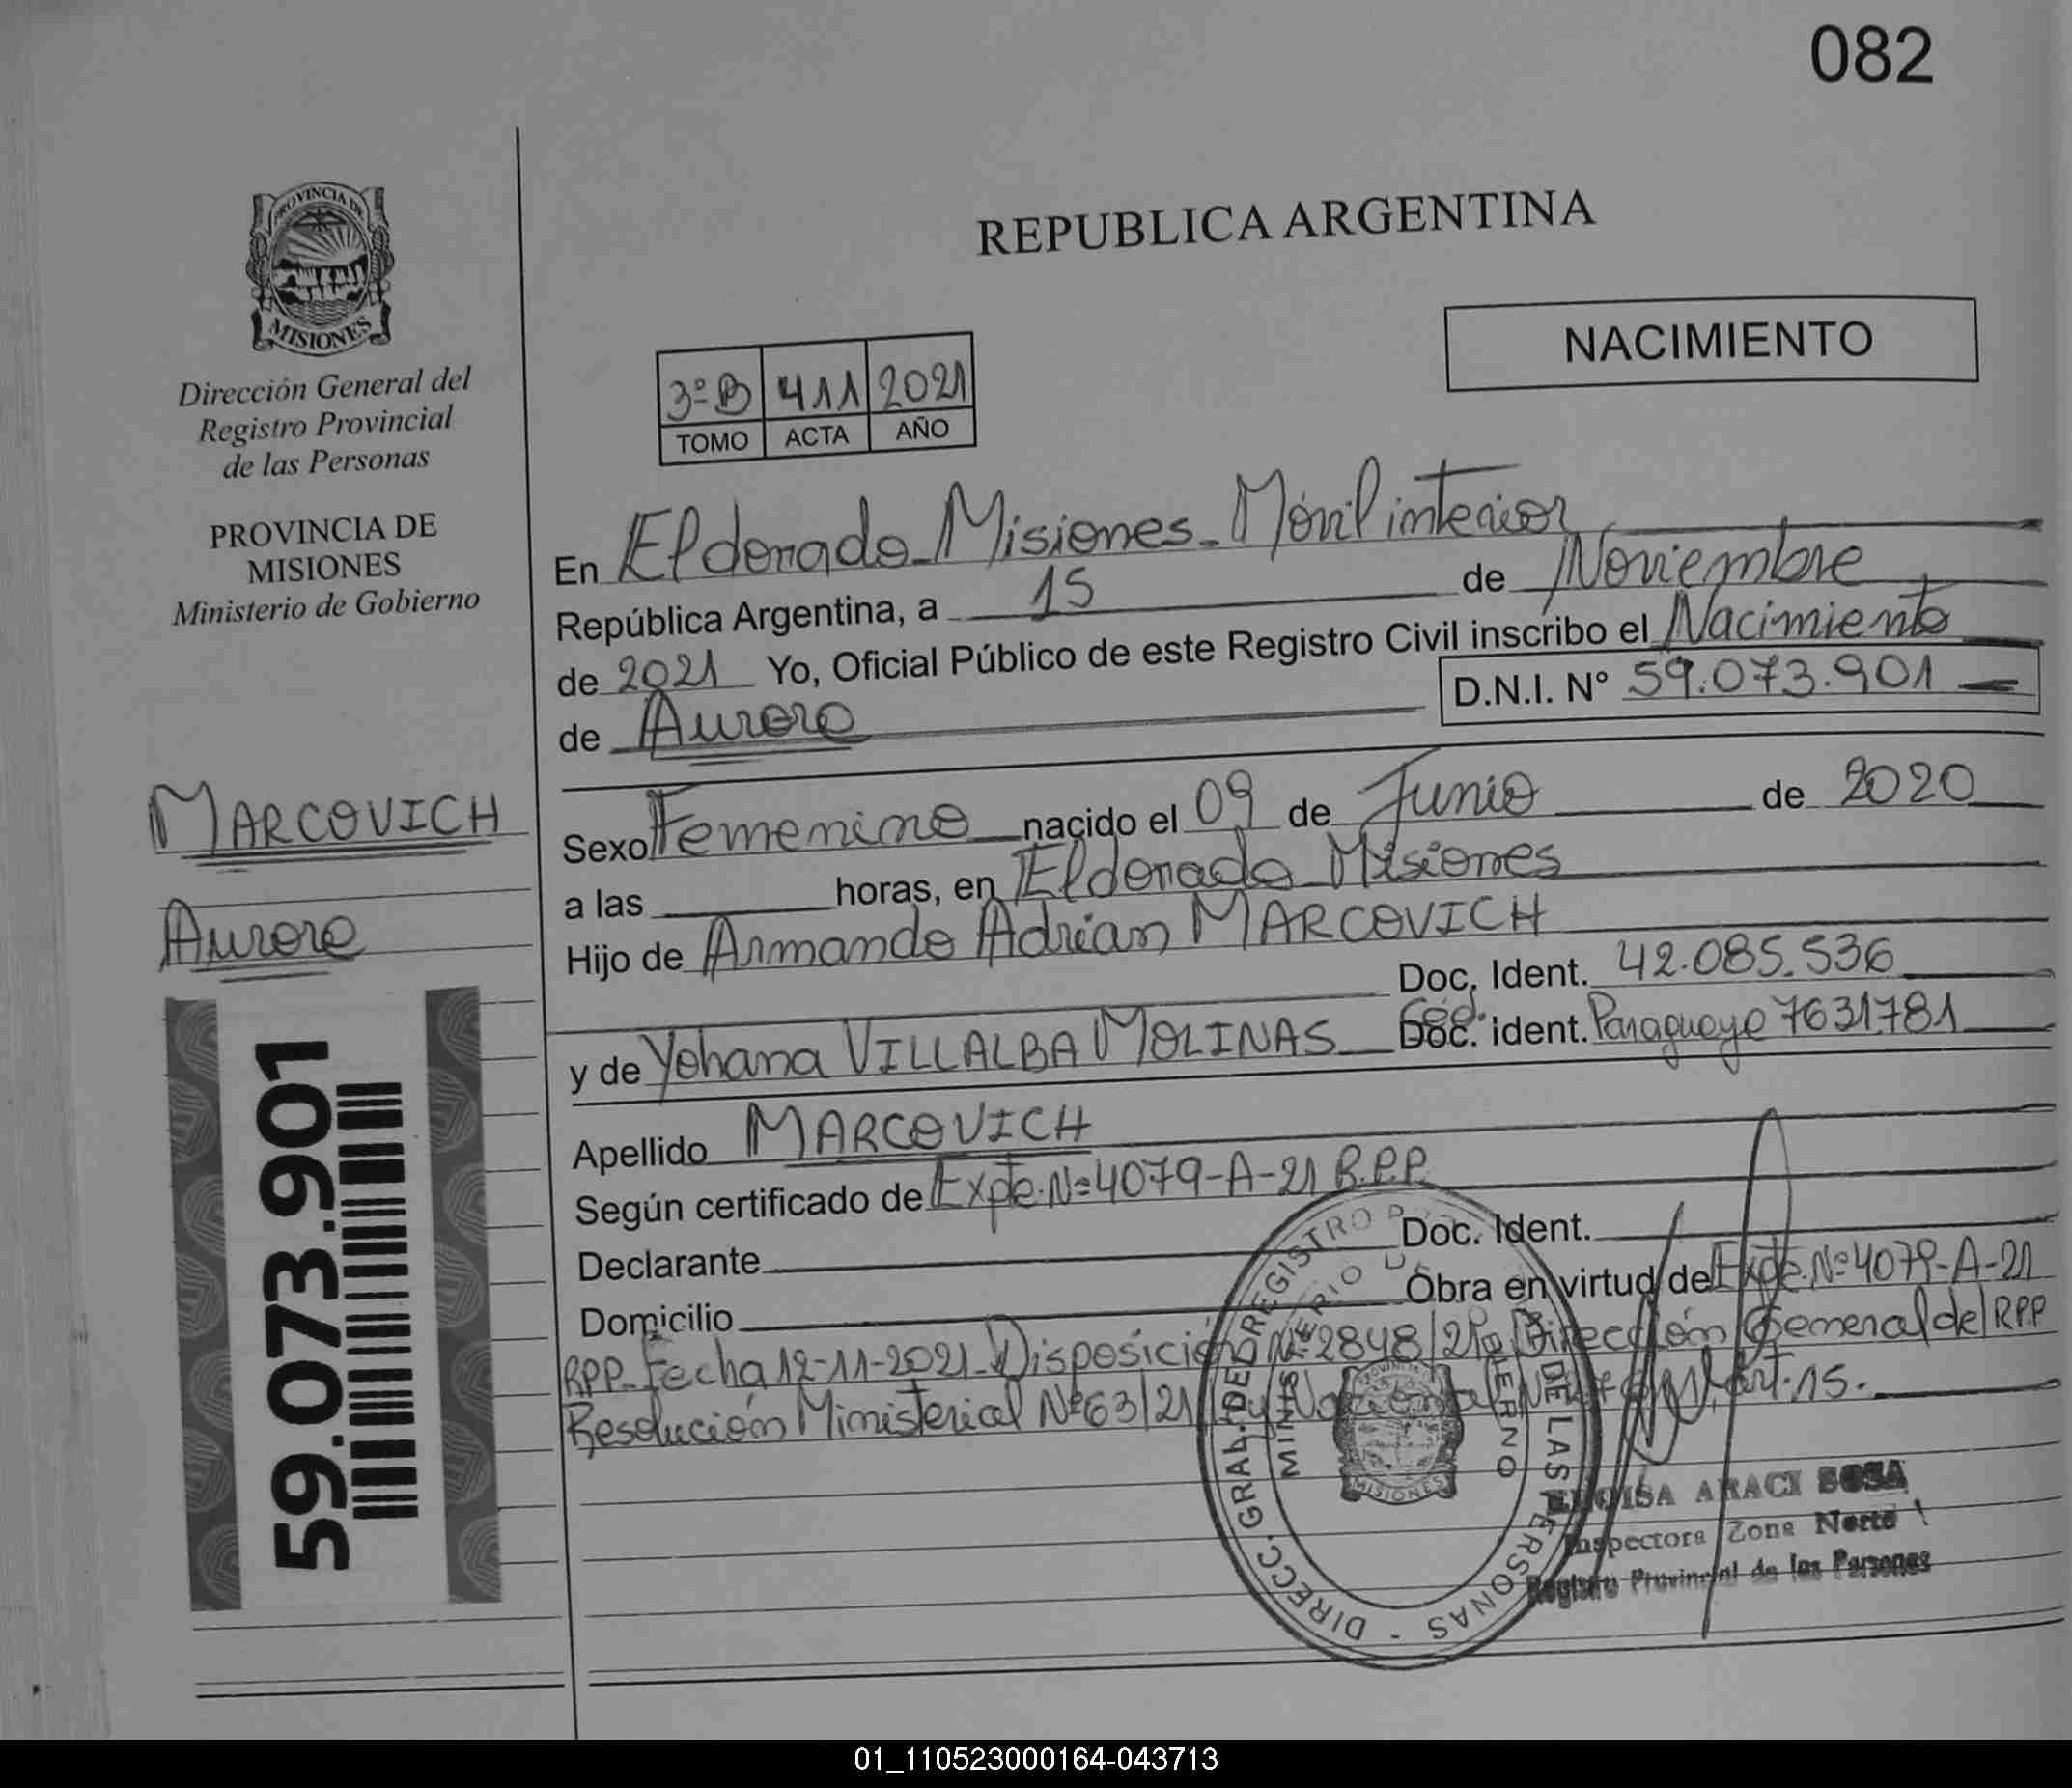 082
PROVINCIA DE
MISIONES
Dirección General del
Registro Provincial
de las Personas
PROVINCIA DE
MISIONES
Ministerio de Gobierno
MARCOVICH
Aurora
59.073.901
REPUBLICA ARGENTINA
NACIMIENTO
3º B 411 2021
TOMO ACTA AÑO
En Eldorado Misiones - Móvil interior
República Argentina, a 15 de Noviembre
de 2021 Yo, Oficial Público de este Registro Civil inscribo el Nacimiento
D.N.I. Nº 59.073.901
de Aurora
Sexo Femenino nacido el 09 de Junio de 2020
a las horas, en Eldorado Misiones
Hijo de Armando Adrian MARCOVICH
Doc. Ident. 42.085.536
y de Yohana VILLALBA MOLINAS Céd. Doc. ident. Paraguaya 7631781
Apellido MARCOVICH
Según certificado de Expe. Nº 4079-A-21 R.P.P.
Declarante Doc. Ident.
Domicilio Obra en virtud de Expe. Nº 4079-A-21
RPP- Fecha 12-11-2021- Disposición Nº 2848/21 Dirección General del RPP
Resolución Ministerial Nº 63/21 Art. 15.
DIRECC. GRAL. DEL REGISTRO DE LAS PERSONAS
MINISTERIO GOBIERNO
MISIONES
ELOISA ARACI SOSA
Inspectora Zona Norte
Registro Provincial de las Personas
01_110523000164-043713